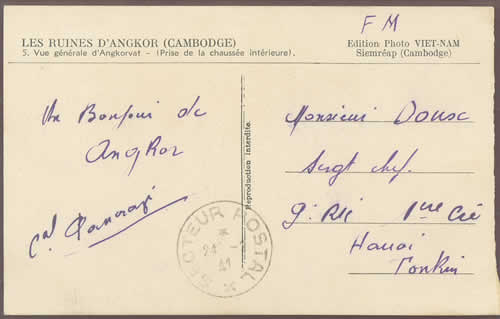 F M
LES RUINES D'ANGKOR (CAMBODGE)
5. Vue générale d'Angkorvat - (Prise de la chaussée intérieure).
Edition Photo VIET-NAM
Siemréap (Cambodge)
Un Bonjour de
Angkor
Reproduction interdite.
SECTEUR POSTAL
24
41
Monsieur
Sergt chef
9e RIC 1ère Cie
Hanoi
Tonkin